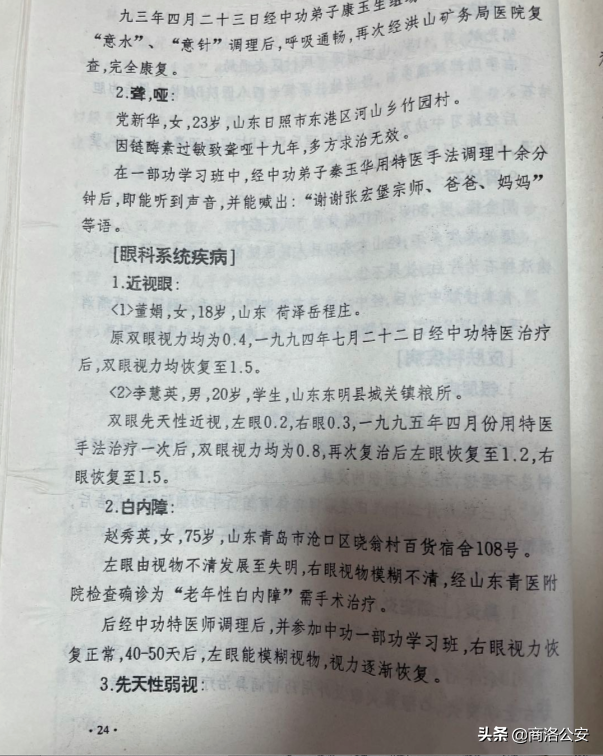 九三年四月二十三日经中功弟子康玉生组
“意水”、“意针”调理后,呼吸通畅,再次经洪山矿务局医院复
查,完全康复。
2.聋,哑:
党新华,女,23岁,山东日照市东港区河山乡竹园村。
因链酶素过敏致聋哑十九年,多方求治无效。
在一部功学习班中,经中功弟子秦玉华用特医手法调理十余分
钟后,即能听到声音,并能喊出:“谢谢张宏堡宗师、爸爸、妈妈”
等语。
[眼科系统疾病]
1.近视眼:
<1>董娟,女,18岁,山东 荷泽岳程庄。
原双眼视力均为0.4,一九九四年七月二十二日经中功特医治疗
后,双眼视力均恢复至1.5。
<2>李慧英,男,20岁,学生,山东东明县城关镇粮所。
双眼先天性近视,左眼0.2,右眼0.3,一九九五年四月份用特医
手法治疗一次后,双眼视力均为0.8,再次复治后左眼恢复至1.2,右
眼恢复至1.5。
2.白内障:
赵秀英,女,75岁,山东青岛市沧口区晓翁村百货宿舍108号。
左眼由视物不清发展至失明,右眼视物模糊不清,经山东青医附
院检查确诊为“老年性白内障”需手术治疗。
后经中功特医师调理后,并参加中功一部功学习班,右眼视力恢
复正常,40-50天后,左眼能模糊视物,视力逐渐恢复。
3.先天性弱视:
·24·
头条 @商洛公安